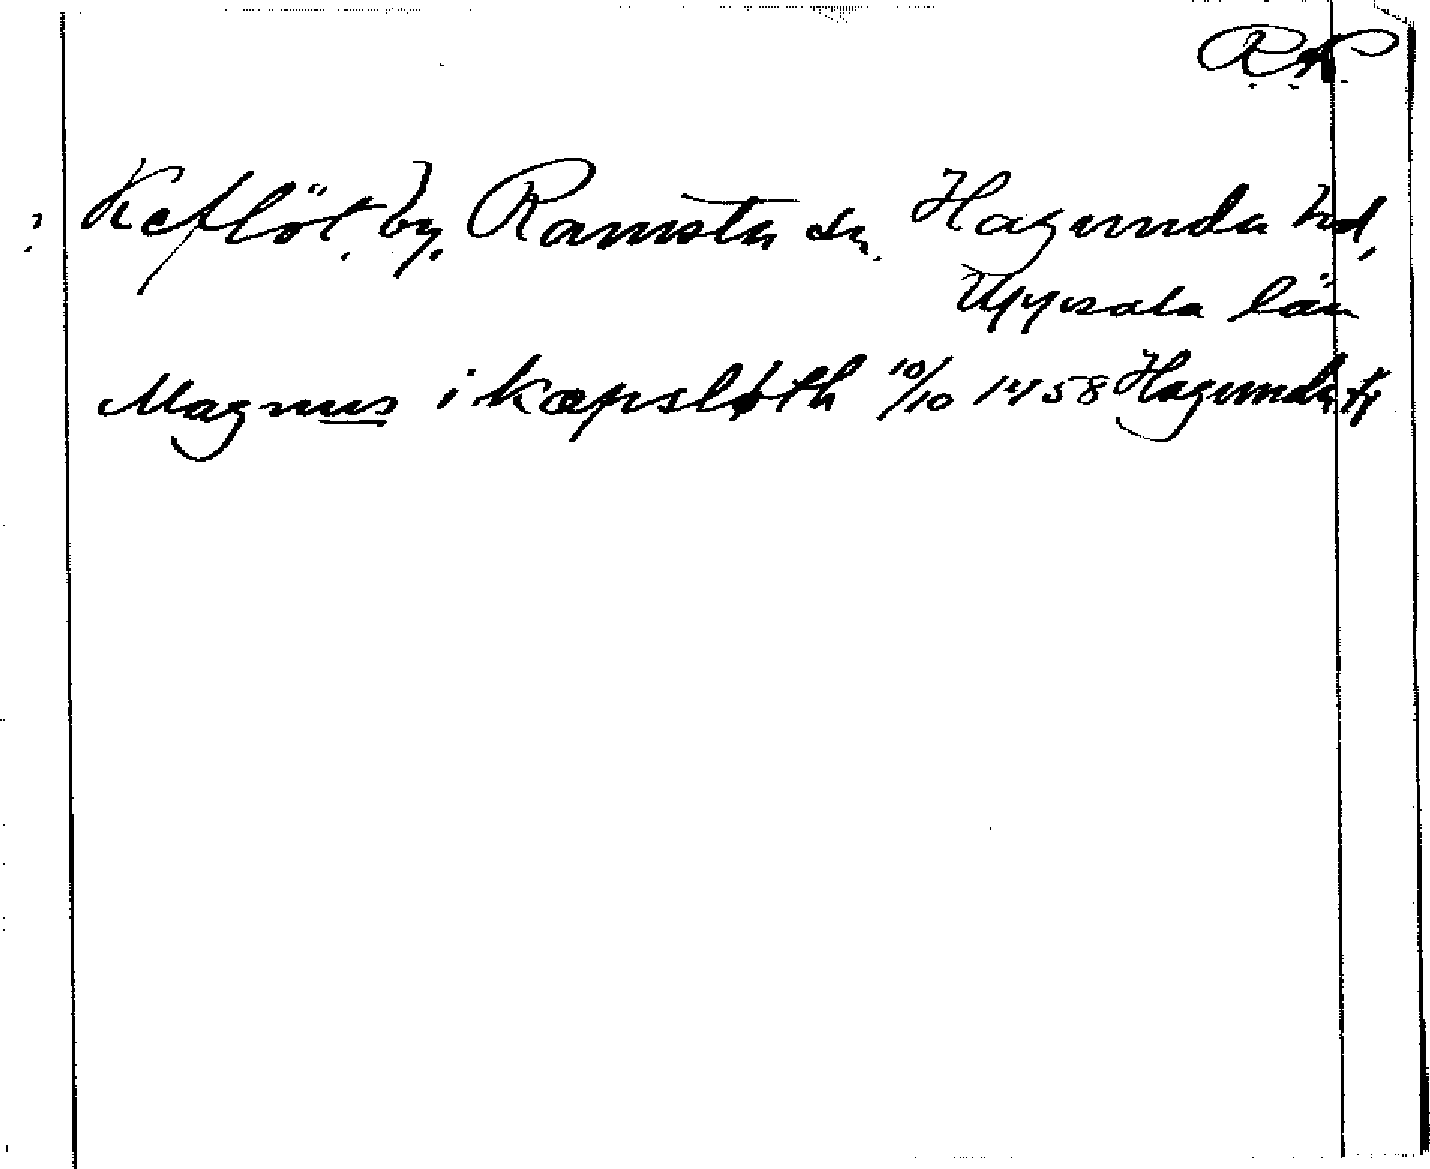 R.A.
? Keflöt, by, Ramsta sn. Hagunda hd,
Uppsala län
Magnus i kæpsløth 10/10 1458 Hagunda